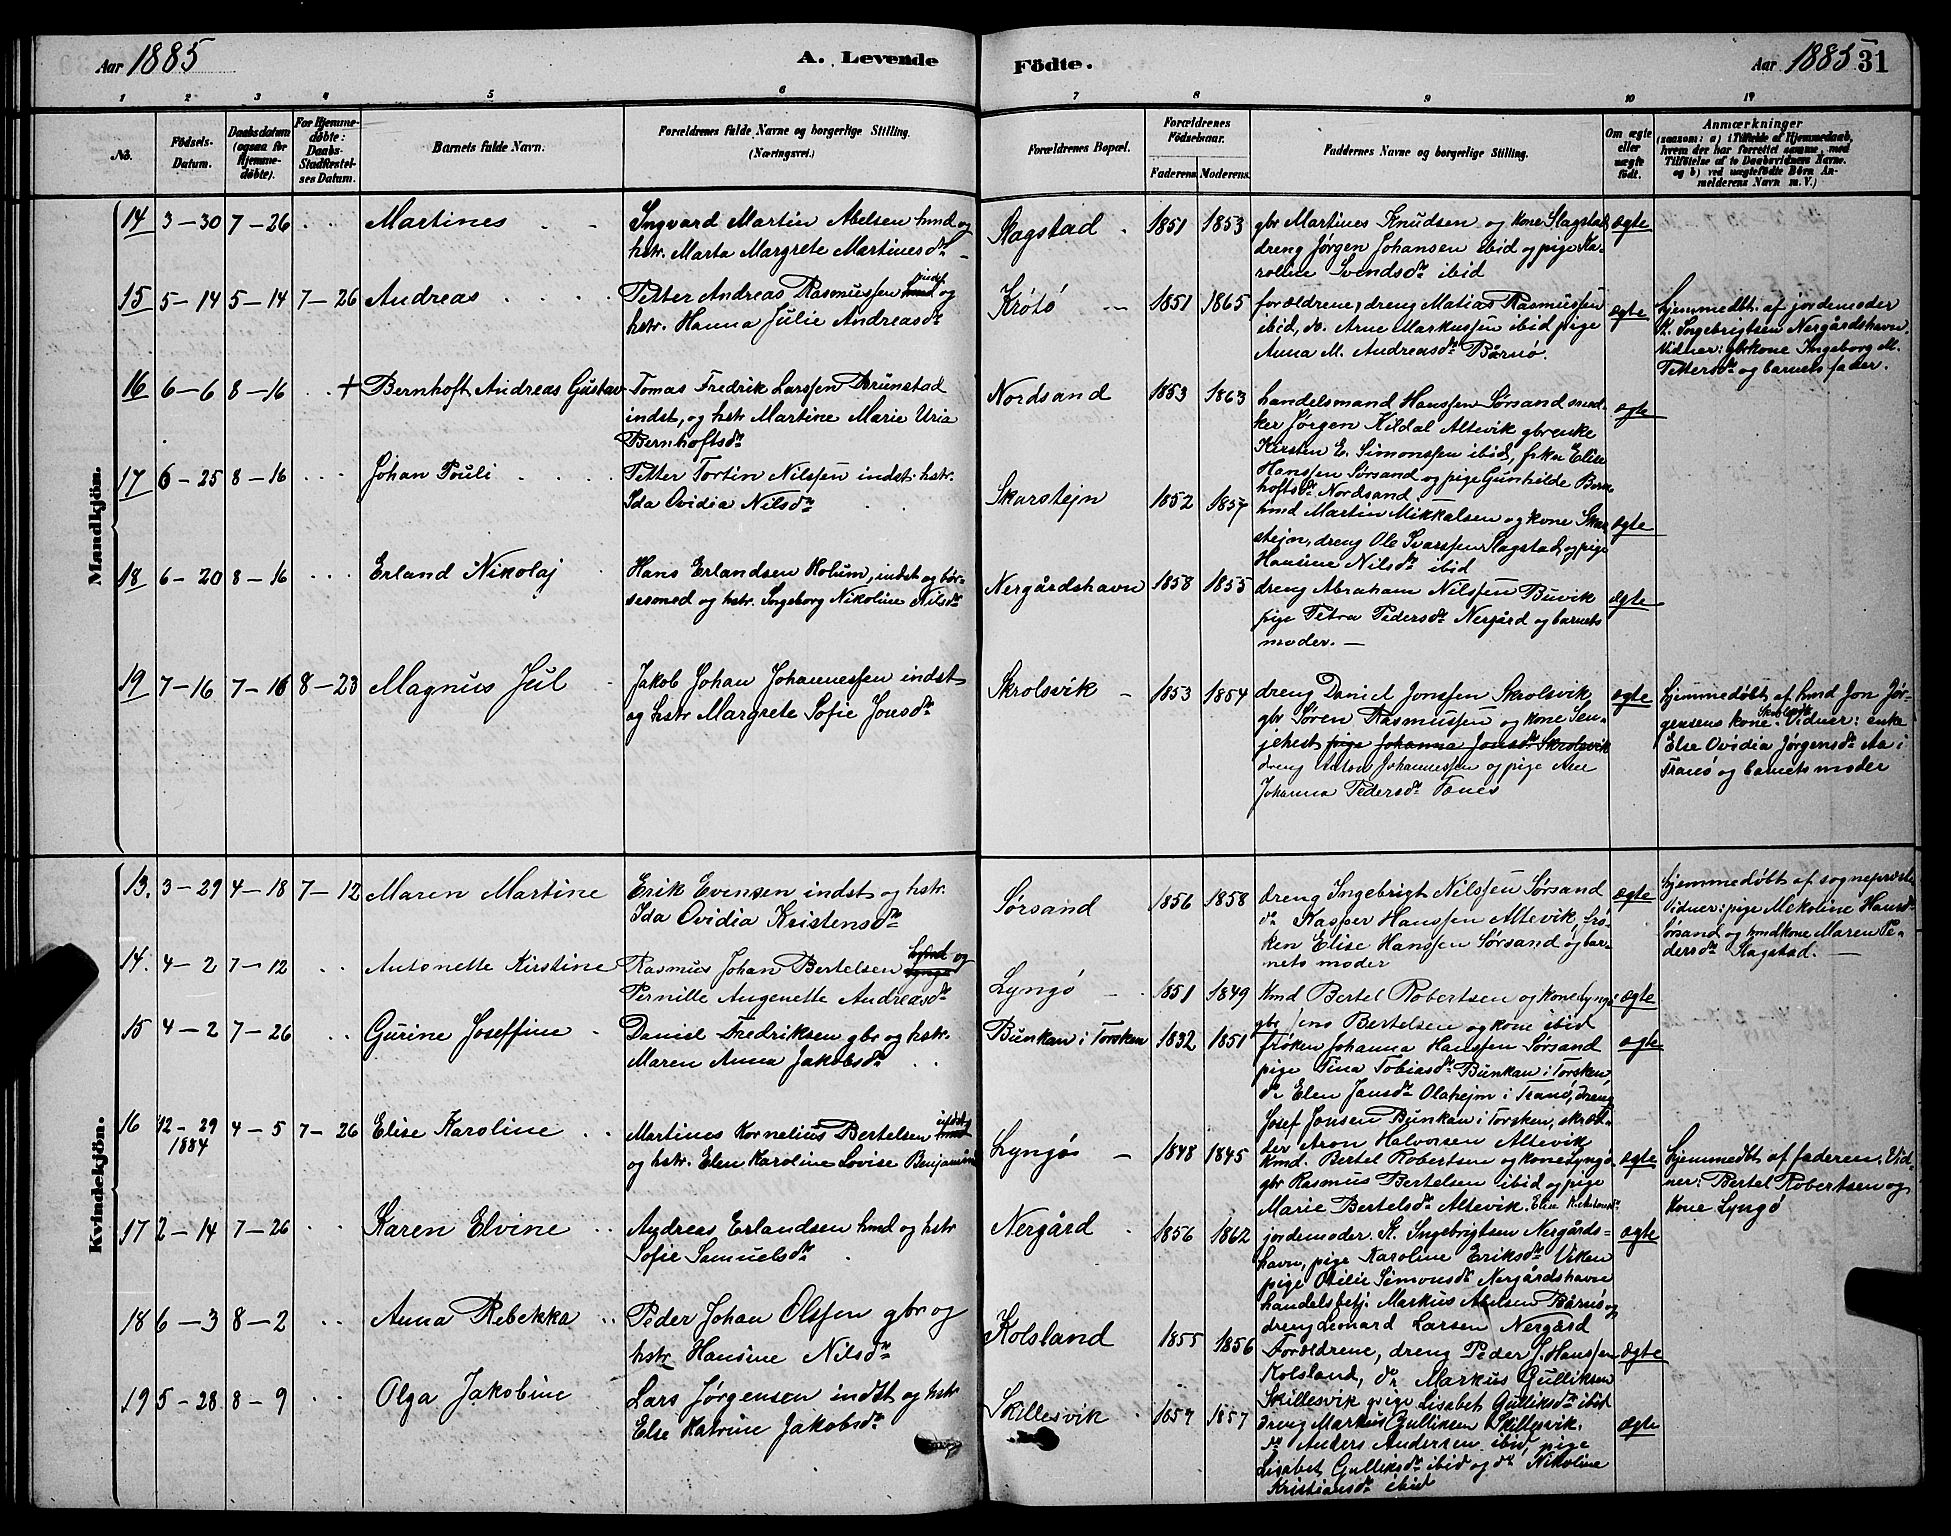 Aar 1885
A. Levende
Födte.
Aar 1885
31
1 2 3 4 5 6 7 8 9 10 11
No.
Födsels-
Datum.
Daabsdatum
(ogsaa for
Hjemme-
døbte).
For Hjemme-
døbte:
Daabs-
Stadfæstel-
ses Datum.
Barnets fulde Navn.
Forældrenes fulde Navne og borgerlige Stilling.
(Næringsvei.)
Forældrenes Bopæl.
Forældrenes
Födselsaar.
Faderens Moderens
Faddernes Navne og borgerlige Stilling.
Om ægte
eller
uægte
födt.
Anmærkninger
(saasom: a) i Tilfælde af Hjemmedaab,
hvem der har forrettet samme, med
Tilföielse af to Daabsvidners Navne.
og b) ved uægtefödte Börn An-
melderens Navn m. V.)
Mandkjön.
14 3-30 7-26 Martines
Ingvard Martin Abelsen hmd og
hstr. Marta Margrete Martinesdr
Slagstad 1851 1853
gbr Martines Knudsen og kone Slagstad
dreng Jørgen Johansen ibid og pige Ka-
roline Svendsdr ibid
ægte
15 5-14 5-14 7-26 Andreas
Petter Andreas Rasmussen indst og
hstr. Hanna Julie Andreasdr
Krøtø 1851 1865
forældrene, dreng Matias Rasmussen
ibid, do. Arne Markussen ibid pige
Anna M. Andreasdr Bårnø.
ægte
hjemmedbt. af jordemoder
K. Ingebrigtsen Nergårdshavn.
Vidner: gbrkone Ingeborg M.
Pettersdr og barnets fader.
16 6-6 8-16 + Bernhoft Andreas Gustav
Tomas Fredrik Larssen Brunstad
indst, og hstr Martine Marie Uria
Bernhoftsdr
Nordsand 1853 1863
handelsmand Hanssen Sørsand sned-
ker Jørgen Kildal Altevik gbrenke
Kirsten E. Simonssen ibid, frkn Elise
Hanssen Sørsand og pige Gunhilde Bern-
hoftsdr Nordsand
ægte
17 6-25 8-16 Johan Pouli
Petter Tortin Nilssen indst. hstr.
Ida Ovidia Nilsdr
Skarstejn 1852 1857
hmd Martin Mikkalsen og kone Skar-
stejn, dreng Ole Ivarssen Slagstad og pige
Hansine Nilsdr ibid
ægte
18 6-20 8-16 Erland Nikolaj
Hans Erlandsen Holum, indst og bøs-
sesmed og hstr. Ingeborg Nikoline Nilsdr
Nergårdshavn 1858 1855
dreng Abraham Nilssen Buvik
pige Petra Pedersdr Nergård og barnets
moder.
ægte
19 7-16 7-16 8-23 Magnus Jul
Jakob Johan Johannessen indst
og hstr Margrete Sofie Jonsdr
Skrolsvik 1853 1854
dreng Daniel Jonssen Skrolsvik
gbr Søren Rasmussen og kone Sen-
jehest pige Johanna Jonsdr Skrolsvik
dreng Anton Johannessen og pige Ane
Johanna Pedersdr Tønes
ægte
hjemmedøbt af hmd Jon Jør-
gensens kone Skrolsvik Vidner: enke
Else Ovidia Jørgensdr Aa i
Tranø og barnets moder
Kvindekjön.
13. 3-29 4-18 7-12 Maren Martine
Erik Evensen indst og hstr.
Ida Ovidia Kristensdr
Sørsand 1856 1858
dreng Ingebrigt Nilssen Sørsand
do. Kasper Hanssen Altevik, frø-
ken Elise Hanssen Sørsand og bar-
nets moder
ægte
hjemmedøbt af sogneprest.
Vidner: pige Mekoline Hansdr
Sørsand og hmdkone Maren Pe-
dersdr Slagstad.
14. 4-2 7-12 Antonette Kirstine
Rasmus Johan Bertelsen og
Pernille Augenette Andreasdr
Lyngø 1851 1849
Kmd Bertel Robertsen og kone Lyngø
gbr Jens Bertelsen og kone ibid
ægte
15 4-2 7-26 Gurine Joseffine
Daniel Fredriksen gbr og hstr.
Maren Anna Jakobsdr
Bunkan i Torsken 1832 1851
frøken Johanna Hanssen Sørsand
pige Tina Tobiasdr Bunkan i Torsken,
do Elen Jansdr Olahejm i Tranø, dreng
Josef Jonsen Bunkan i Torsken, skræd-
der Aron Halvorsen Altevik
ægte
16 12-29 1884 4-5 7-26 Elise Karoline
Martines Kornelius Bertelsen indst
og hstr. Elen Karoline Lovise Benjamins
Lyngø 1848 1845
Kmd. Bertel Robertsen og kone Lyngø
gbr Rasmus Bertelsen ibid og pige
Marie Bertelsdr Altevik.
ægte
hjemmedbt af faderen. Vid-
ner: Bertel Robertsen og
kone Lyngø
17 2-14 7-26 Karen Elvine
Andreas Erlandsen hmd og hstr
Sofie Samuelsdr
Nergård 1856 1862
jordemoder K. Ingebrigtsen Nergårds-
havn, pige Karoline Eriksdr Viken
pige Otilie Simonsdr Nergårdshavn
handelsbetj. Markus Abelsen Bårnø og
dreng Leonard Larsen Nergård
ægte
18 6-3 8-2 Anna Rebekka
Peder Johan Olssen gbr og
hstr Hansine Nilsdr
Kolsland 1855 1856
Forældrene, dreng Peder J. Hanssen
Kolsland, do Markus Gulliksen
Skillesvik pige Lisabet Gulliksdr ibid
ægte
19 5-28 8-9 Olga Jakobine
Lars Jørgensen indst og hstr
Else Katrine Jakobsdr
Skillesvik 1857 1857
dreng Markus Gulliksen Skillesvik.
do Anders Andersen ibid, pige
Lisabet Gulliksdr ibid og do Nikoline
Kristiansdr ibid
ægte